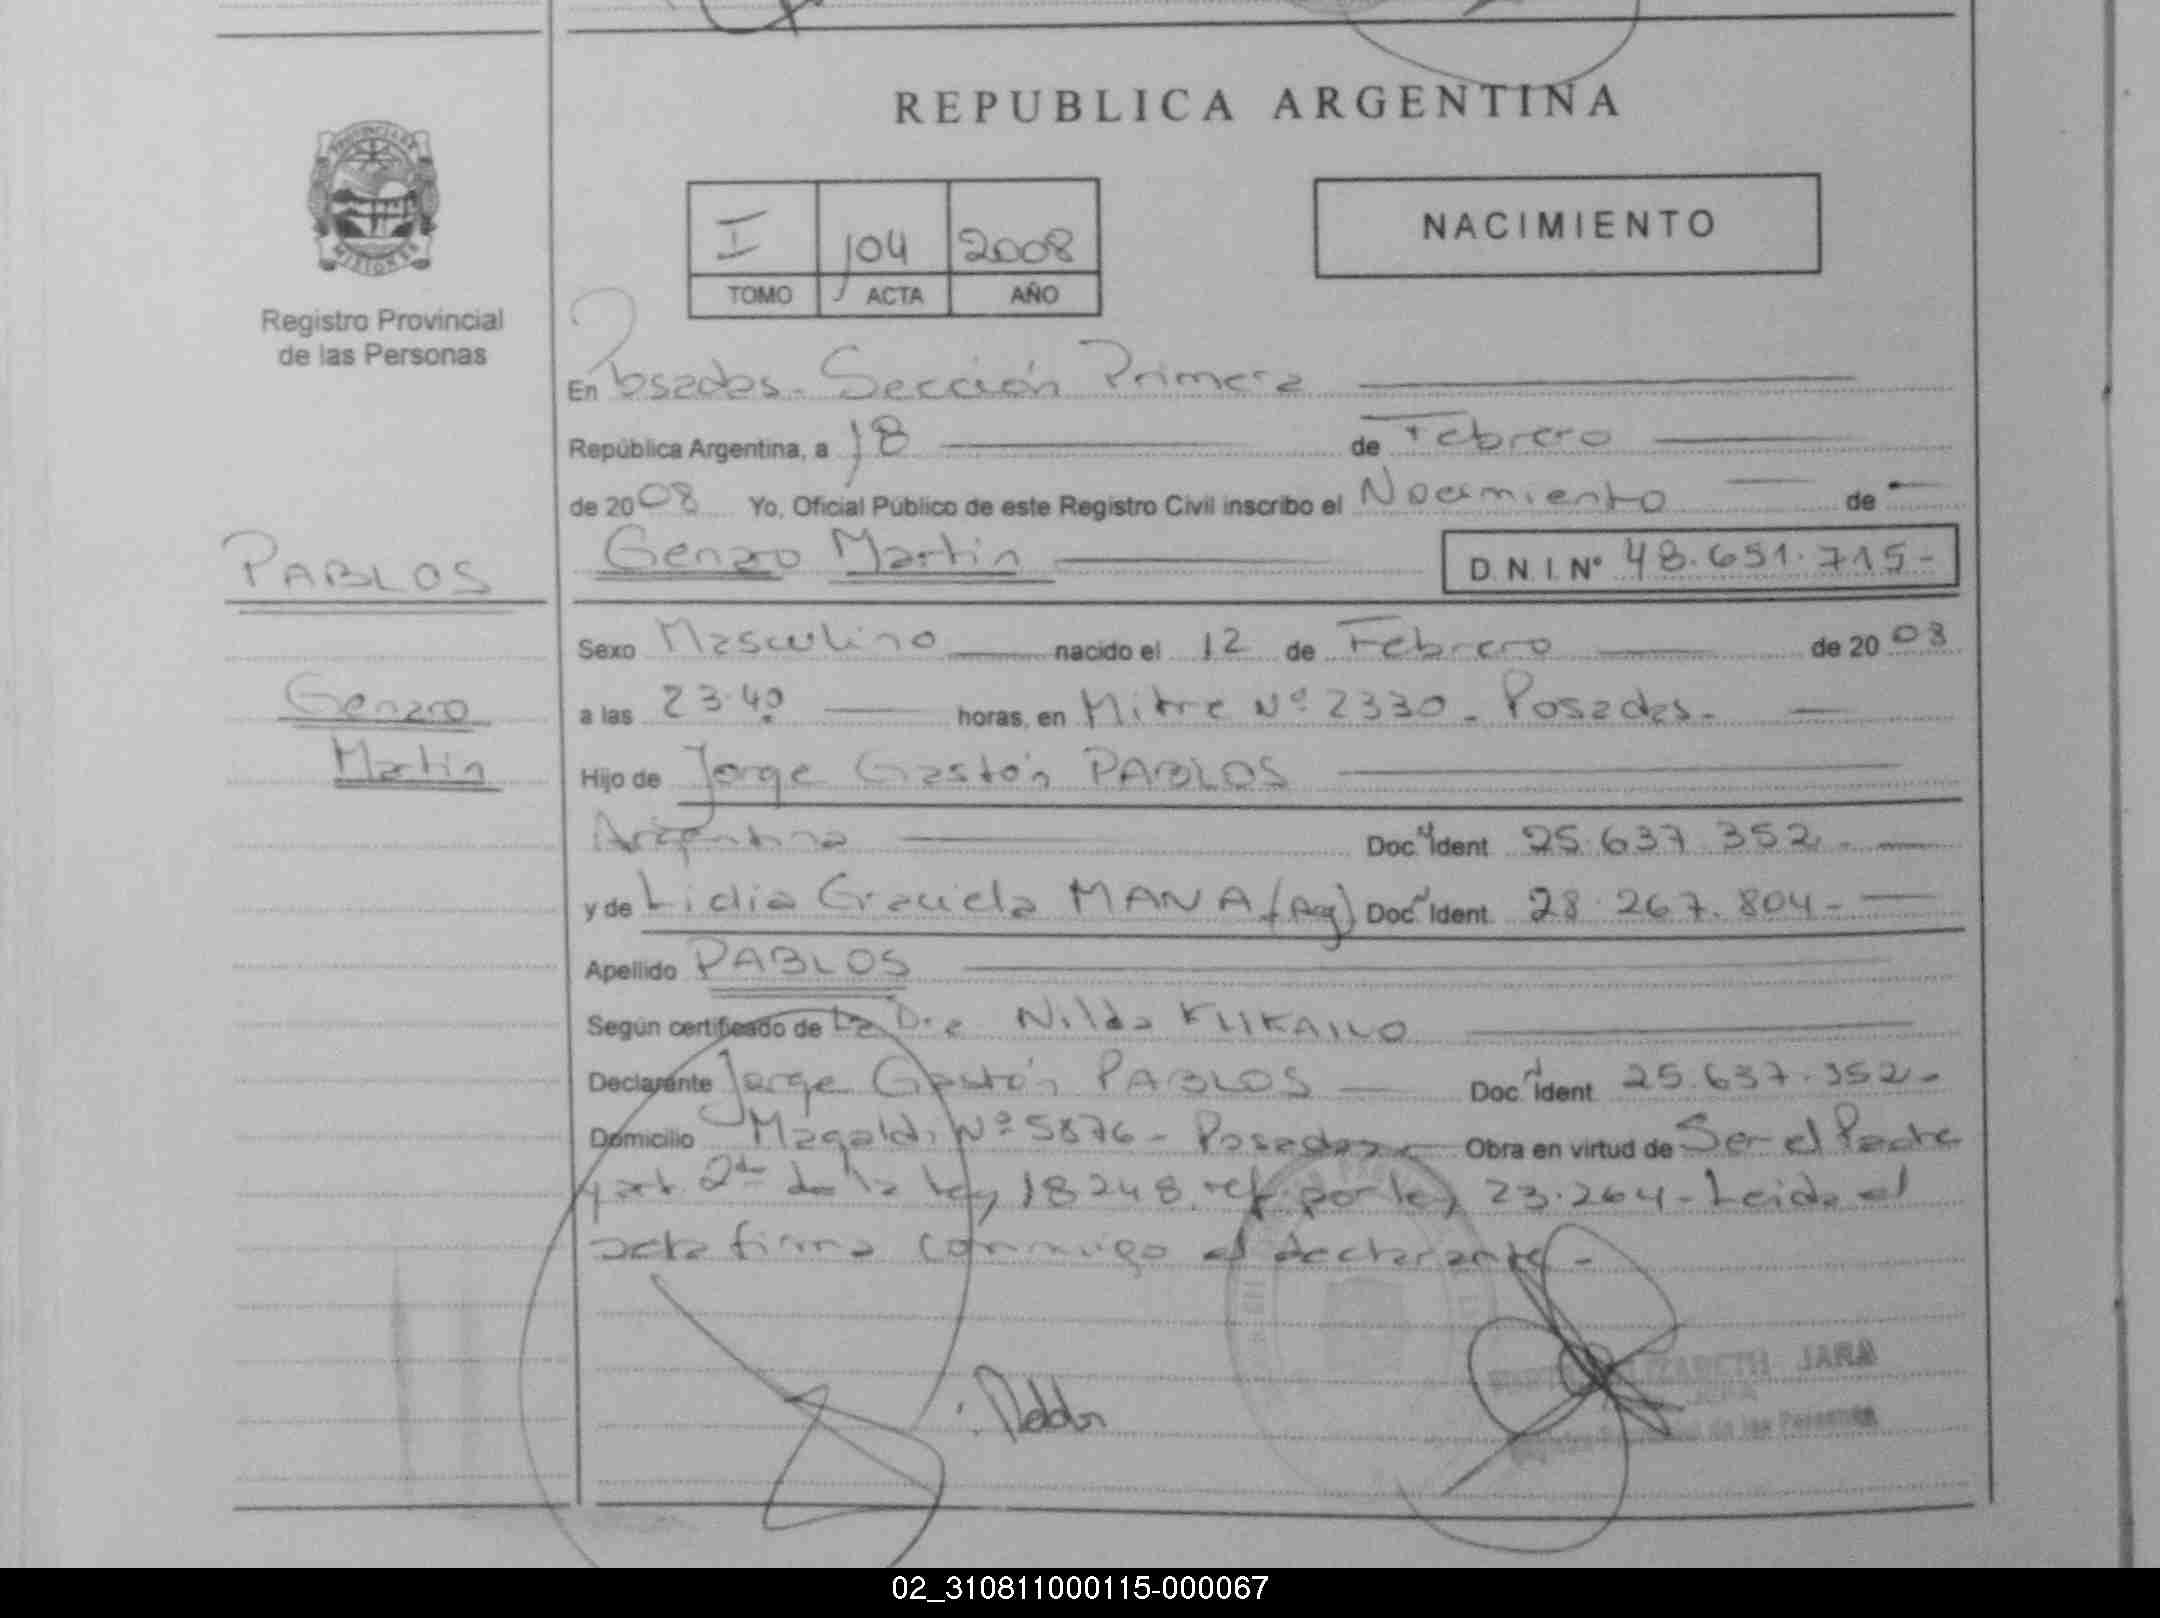 REPUBLICA ARGENTINA
PROVINCIA DE
MISIONES
Registro Provincial
de las Personas
I 104 2008
TOMO ACTA AÑO
NACIMIENTO
En Posadas. Sección Primera
República Argentina, a 18 de Febrero
de 2008 Yo, Oficial Público de este Registro Civil inscribo el Nacimiento de
PABLOS
Genaro Martin D.N.I. Nº 48.651.715-
Sexo Masculino nacido el 12 de Febrero de 2008
Genaro
Martin
a las 23.40 horas, en Mitre Nº 2330 - Posadas.
Hijo de Jorge Gastón PABLOS
Argentina Doc. Ident 25.637.352.-
y de Lidia Graciela MANA (Arg) Doc. Ident. 28.267.804-
Apellido PABLOS
Según certificado de La Dra Nilda
Declarante Jorge Gastón PABLOS Doc. Ident. 25.637.352-
Domicilio Magaldi Nº 5876 - Posadas Obra en virtud de Ser el Padre
y art. 2do de la Ley 18248. ref. por ley 23.264 - Leida el
acta firma conmigo el declarante -
JARA
de las Personas
02_310811000115-000067